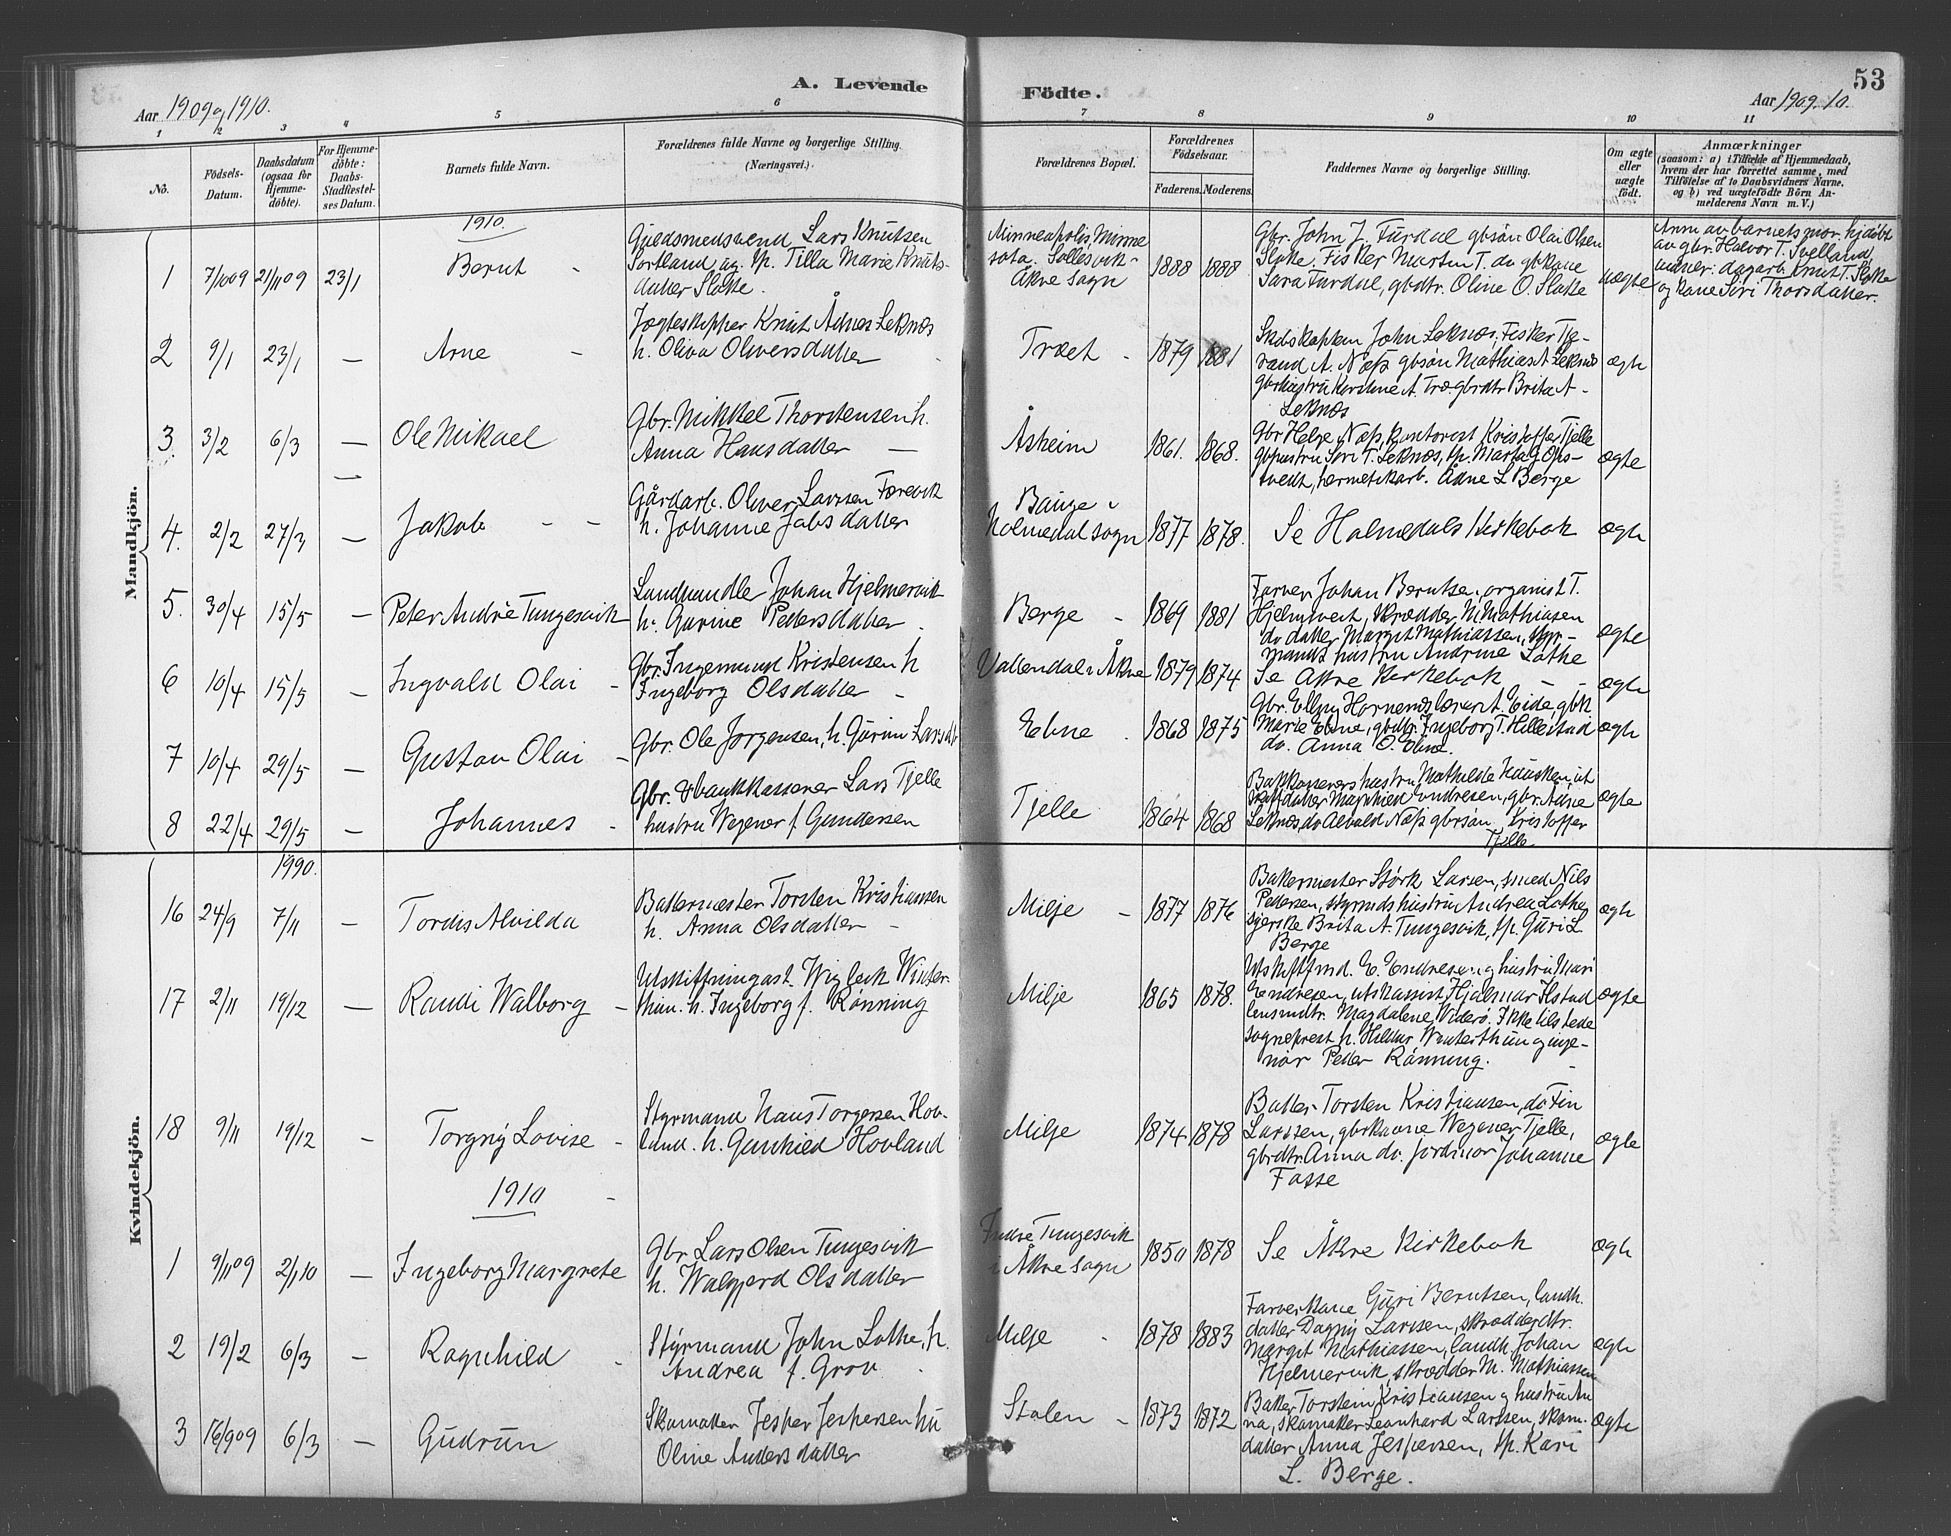 A. Levende
Födte.
53
Aar 1909 og 1910.
Aar 1909. 10.
1
2
3
4
5
6
7
8
9
10
11
No.
Födsels-
Datum.
Daabsdatum
(ogsaa for
Hjemme-
döbte).
For Hjemme-
döbte:
Daabs-
Stadfæstel-
ses Datum.
Barnets fulde Navn.
Forældrenes fulde Navne og borgerlige Stilling.
(Næringsvei.)
Forældrenes Bopæl.
Forældrenes
Födselsaar.
Faderens.
Moderens.
Faddernes Navne og borgerlige Stilling.
Om ægte
eller
uægte
födt.
Anmærkninger
(saasom: a) i Tilfælde af Hjemmedaab,
hvem der har forrettet samme, med
Tilföielse af to Daabsvidners Navne.
og b) ved uægtefödt Börn An-
melderens Navn m. V.)
Mandkjön.
1910.
1 7/10 09 21/11 09 23/1 Bernt -
Guldsmedsvend Lars Knutsen
Sortland ug. p. Tilla Marie Knuts-
datter Slotte.
Minneapolis, Minne
sota. Sallesvik-
Åkre sogn
1888 1888
Gbr. John J. Furdal gbsön Olai Olsen
Slotte. Fisker Martin T. do gbkone
Sara Furdal, gbdtr. Oline O. Slotte
uægte
Anm av barnets mor. hjdöbt
av gbr. Halvor T. Svelland,
vidner: dagarb. Knut T. Slotte
og kone Siri Thorsdatter.
2 9/1 23/1 — Arne -
Jægteskipper Knut Ådnes Leknæs
h. Oliva Oliversdatter
Træet - 1879 1881
John Leknæs, Fisker
A. Næss gbsön Mathias A Leknæs
A. Træ gbrdtr Brita A-
Leknæs
ægte
3. 3/2 6/3 — Ole Mikael
Gbr. Mikkel Thorstensen h.
Anna Hansdatter —
Åsheim 1861. 1868.
Gbr Helge Næss, kontorist Kristoffer Tjelle
gbhustru Siri T. Leknæs, p. Marta G Ops-
tvedt, hermetikarb. Ådne L Berge
ægte
4. 2/2 27/3 — Jakob - -
Gårdarb. Oliver Larssen Færevik
h. Johanne Jabsdatter
Bauge i
Holmedal sogn
1877 1878.
Se Holmedals Kirkebok ægte
5. 30/4 15/5 — Peter André Tungesvik
Landhandler Johan Hjelmervik
h. Gurine Pedersdatter
Berge - 1869 1881
Farver Johan Berntsen, organist T.
Hjelmtveit, skrædder M. Mathiassen
do datter Margit Mathiassen, styr-
mands hustru Andrine Lothe
ægte
6 10/4 15/5 — Ingvald Olai -
Gbr. Ingemund Kristensen h
Ingeborg Olsdatter -
Vallendal i Åkre 1879 1874
Se Åkre Kirkebok - -
ægte
7 10/4 29/5 — Gustav Olai -
Gbr. Ole Jørgensen, h. Gurine Larsdtr
Ebne 1868 1875
Gbr. Elling Hornenes lærer A. Eide, gbk
Marie Ebne, gbdtr. Ingeborg T. Hellestad
do. Anna O. Ebne.
ægte
8 22/4 29/5 — Johannes -
Gbr. & bankkasserer Lars Tjelle
hustru Wegener f. Gundersen
Tjelle 1864 1868
hustru Mathilde Hausken, ut
datter Magnhild Endresen, gbr. Ådne
Leknæs, do Alvald Næss gbrsön Kristoffer
Tjelle
ægte
Kvindekjön.
1990.
16 24/9 7/11 — Tordis Alvilda
Bakermester Torsten Kristiansen
h. Anna Olsdatter -
Milje - 1877 1876
Bakermester Störk Larsen, smed Nils
Pedersen, styrmds hustru Andrea Lothe
syerske Brita A. Tungesvik, p. Guri L
Berge
ægte
17 2/11 19/12 — Randi Walborg -
Utskiftningsast. Wigleik Winter-
thun. h. Ingeborg f. Rönning
Milje 1865 1878.
Utskiftfmd. E. Endresen og hustru Mari
Endresen, utskassist. Hjalmar Ilstad
lensmdtr. Magdalene Viderö. Ikke tilstede
sogneprest h. Hildur Winterthun og inge-
niör Peder Rönning.
ægte
18 9/11 19/12 - Torgny Lovise -
Styrmand Hans Torgersen Hov-
land. h. Gunhild Hovland
Milje 1874 1878
Baker Torsten Kristiansen, do Fin
Larssen, gbrkone Wegener Tjelle,
gbrdtr. Anna do. jordmor Johanne
Fosse
ægte
1910 -
1 9/11 09 2/1 10 — Ingeborg Margrete
Gbr. Lars Olsen Tungesvik
h. Walgjerd Olsdatter
Indre Tungesvik
i Åkre sogn
1850 1878
Se Åkre Kirkebok ægte
2 19/2 6/3 — Ragnhild -
Styrmand John Lothe, h.
Andrea f. Grov
Milje 1878 1883
Farverkone Guri Berntsen, landh.
datter Dagny Larssen, skrædderdtr.
Margit Mathiassen, landh. Johan
Hjelmervik, skrædder M. Mathiassen
ægte
3 16/9 09 6/3 — Gudrun
Skomaker Jesper Jespersen hu
Oline Andersdatter
Stolen - 1873 1872
Baker Torstein Kristiansen og hustru An
na, skomaker Leonhard Larssen, skom.
datter Anna Jespersen, p. Kari
L. Berge.
ægte